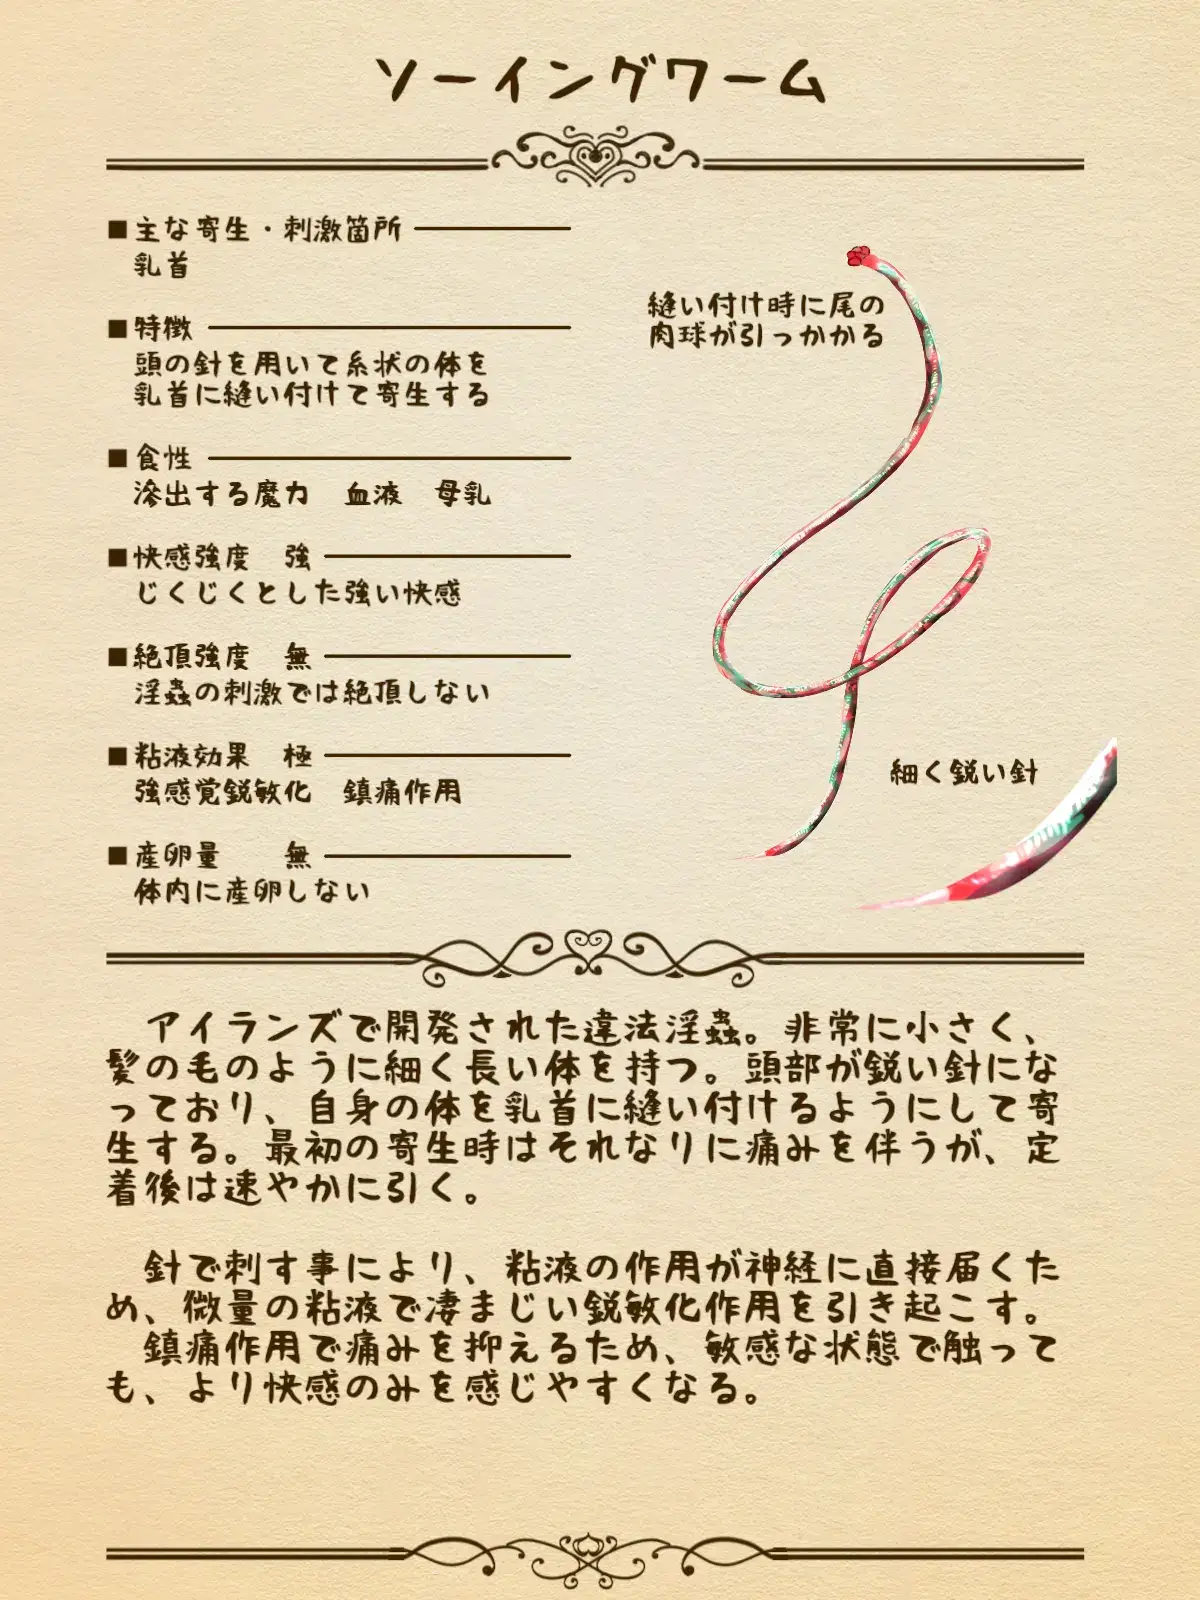 ソーイングワーム
■主な寄生・刺激箇所
乳首
■特徴
頭の針を用いて糸状の体を
乳首に縫い付けて寄生する
■食性
滲出する魔力　血液　母乳
■快感強度　強
じくじくとした強い快感
■絶頂強度　無
淫蟲の刺激では絶頂しない
■粘液効果　極
強感覚鋭敏化　鎮痛作用
■産卵量　　無
体内に産卵しない
縫い付け時に尾の
肉球が引っかかる
細く鋭い針
　アイランズで開発された違法淫蟲。非常に小さく、
髪の毛のように細く長い体を持つ。頭部が鋭い針にな
っており、自身の体を乳首に縫い付けるようにして寄
生する。最初の寄生時はそれなりに痛みを伴うが、定
着後は速やかに引く。
　針で刺す事により、粘液の作用が神経に直接届くた
め、微量の粘液で凄まじい鋭敏化作用を引き起こす。
　鎮痛作用で痛みを抑えるため、敏感な状態で触って
も、より快感のみを感じやすくなる。